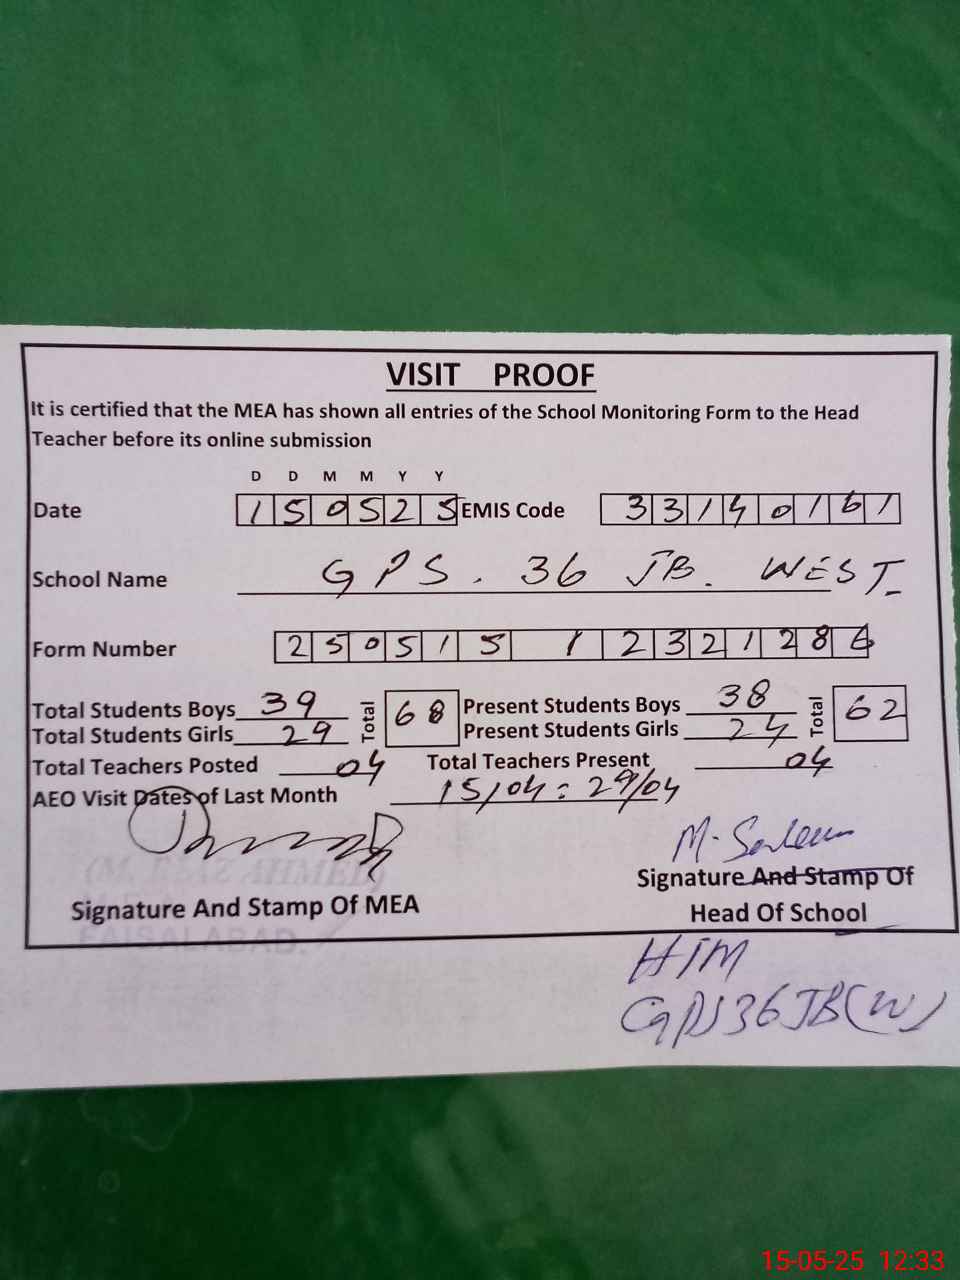 VISIT PROOF
It is certified that the MEA has shown all entries of the School Monitoring Form to the Head
Teacher before its online submission
D D M M Y Y
Date 150525 EMIS Code 33140161
School Name GPS. 36 JB. WEST
Form Number 250515 1 2321286
Total Students Boys 39 Total 68 Present Students Boys 38 Total 62
Total Students Girls 29 Present Students Girls 24
Total Teachers Posted 04 Total Teachers Present 04
AEO Visit Dates of Last Month 15/04 : 29/04
M. Saleem
Signature And Stamp Of MEA
Signature And Stamp Of
Head Of School
FAISALABAD.
H/M
GPS 36 JB (W)
15-05-25 12:33